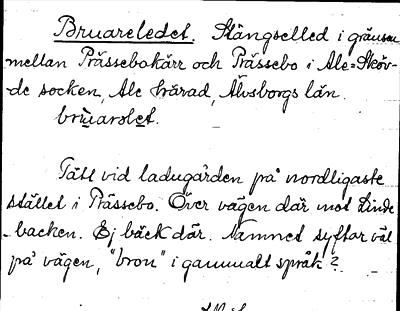 Bruareledet. Stängselled i gränsen
mellan Prässebokärr och Prässebo i Ale-Sköv-
de socken, Ale härad, Älvsborgs län.
brùarolet.
Tätt vid ladugården på nordligaste
stället i Prässebo. Över vägen där mot Linde-
backen. Ej bäck där. Namnet syftar väl
på vägen, "bron" i gammalt språk?